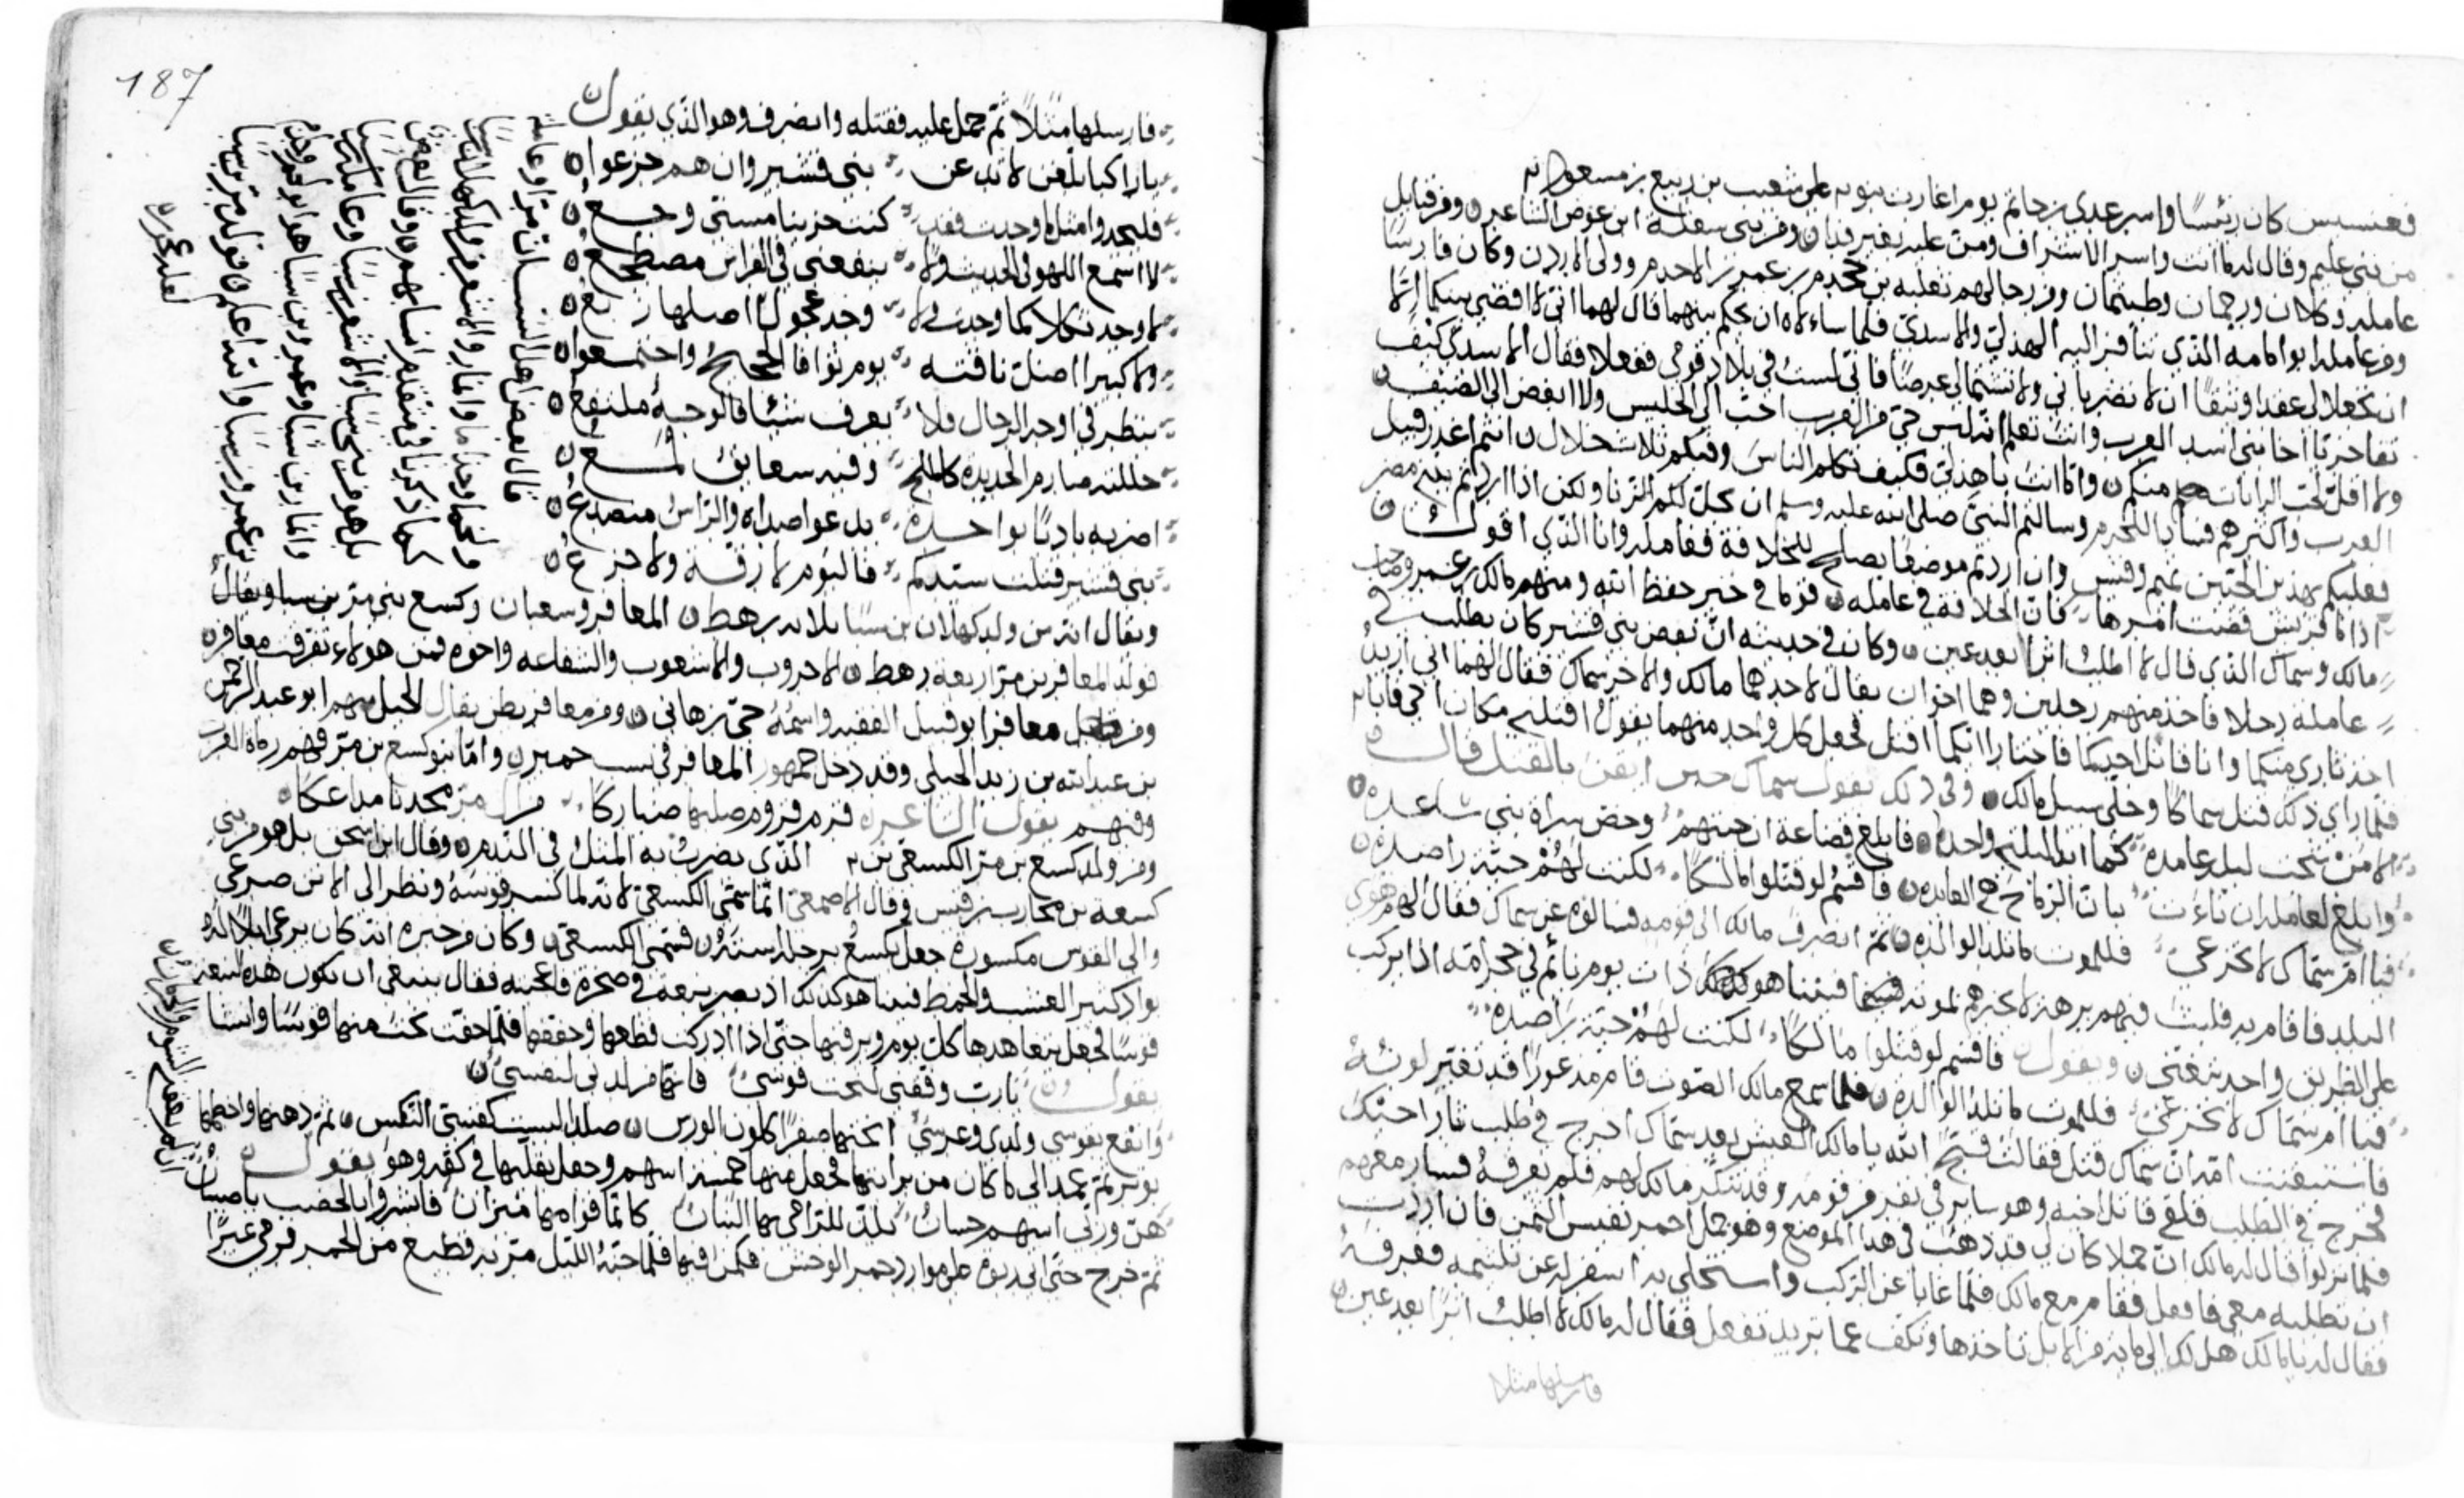 فعسيس كان رئيسًا واسر عدي بن حاتم يوم اغارت بنو على شعيب بن ربيع بن مسعود
من بني عليم وقال له ما انت واسر الاشراف ومن عليه بغير فدا ومن بني سعد ابن عوض الشاعر ومن قبايل
عامله وكلان ورجمان وطيثمان ومن رجالهم ثعلبه بن جحدم بن عمرو بن الاحدم وولى الاردن وكان فارسًا
ومن عامله ابو امامه الذي تنافر اليه الهذلي والاسدي فلما سالاه ان يحكم بينهما قال لهما اني لا اقضي بينكما الا
ان تجعلا لي عقدا وثيقًا ان لا تضرباني ولا تشتما لي عرضًا فاني لست في بلاد قومي ففعلا فقال للاسدي كيف
تفاخر يا اخا بني اسد العرب وانت تعلم انه ليس حي من العرب احب الى الجليس ولا ابغض الى الضيف
ولا اقل تحت الرايات منكم واما انت يا هذلي فكيف تكلم الناس وفيكم ثلاث خلال انتم اغدر قبيل
العرب واكثرهم فسادا للحرم وسالتم النبي صلى الله عليه وسلم ان يحل لكم الزنا ولكن اذا اردتم بيتي مضر
فعليكم بهذين الحيين تميم وقيس وان اردتم موضعًا يصلح للخلافة فعامله وانا الذي اقول
اذا ما قريش قضت امرها فان الخلافة في عامله قوما في خير حفظ الله ومنهم مالك بن عمرو
مالك وسماك الذي قال لا اطلب اثرا بعد عين وكان في حديثه ان بعض بني قشير كان يطلب في
عامله رجلا فاخذ منهم رجلين وهما اخوان يقال لاحدهما مالك والاخر سماك فقال لهما اني اريد
اخذ ثاري منكما وانا قاتل احدكما فاختارا ايكما اقتل فجعل كل واحد منهما يقول اقتلني مكان اخي
فلما راى ذلك قتل سماكا وخلى سبيل مالك وفي ذلك يقول سماك حين ايقن بالقتل قال
الا من شجت ليله عامده كما ابدا ليله واحده فابلغ قضاعة ان جيتهم وخص سراة بني ساعده
وابلغ لعامله ان ناءت بان الرماح هي العايده فاقسم لو قتلوا مالكا لكنت لهم حية راصده
فيا ام سماك لا تجزعي فللموت ما تلد الوالده ثم انصرف مالك الى قومه فسالوه عن سماك فقال لهم هوى
البلد فاقام به فلبث فيهم برهة لا يخبرهم بموته فبينا هو كذلك ذات يوم نائم في حجر امه اذا بركب
على الطريق واحد يتغنى ويقول فاقسم لو قتلوا مالكا لكنت لهم حية راصده
فيا ام سماك لا تجزعي فللموت ما تلد الوالده فلما سمع مالك الصوت قام مذعورًا قد تغير لونه
فاستيقنت امه ان سماك قتل فقالت قبح الله يا مالك العيش بعد سماك اخرج في طلب ثار اخيك
فخرج في الطلب فلقي قاتل اخيه وهو ساير في نفر من قومه وقد تنكر مالك لهم فلم يعرفه فسار معهم
فلما نزلوا قال له مالك ان جملا كان لي قد ذهب في هذا الموضع وهو جمل احمر نفيس الثمن فان اردت
ان تطلبه معي فافعل فقام مع مالك فلما غابا عن الركب واستخلى به اسفر له عن تلثيمه فعرفه
فقال له يا مالك هل لك الى مايه من الابل تاخذها وتكف عما تريد تفعل فقال له مالك لا اطلب اثرًا بعد عين
فارسلها مثلا
187
فارسلها مثلا ثم حمل عليه فقتله وانصرف وهو الذي يقول
يا راكبا بلغن لا تدعن بني قشير وان هم جزعوا
فليجدوا مثل ما وجدت فقد كنت حزينا مسني وجع
لا اسمع اللهو في الحديث ولا ينفعني في الفراش مضطجع
لا وجد ثكلا كما وجدت ولا وجد عجول اضلها ربع
ولا كبير اضل ناقته يوم توافا الحجيج واجتمعوا
ينظر في اوجه الرجال فلا يعرف شيئا فالوجه ملتفع
جللته صارم الحديدة كالملح وفيه سفاسق لمع
اضربه باديًا نواجذه يدعو صداه والراس منصدع
بني قشير قتلت سيدكم فاليوم لا رقة ولا جزع
ويقال ان من ولد كهلان بن سبا ثلاثه رهط المعافر وسعبان وكسع بني متر بن سبا ويقال
فولد المعافر بن متر اربعه رهط الاحروب والاشعوب والسفاعه واخوه فمن هولاء تفرقت معافر
ومن معافر ابو قبيل الفقيه واسمه حي بن هاني ومن معافر بطن يقال الحبل منهم ابو عبد الرحمن
بن عبد الله بن زيد الحبلي وقد دخل جمهور المعافر في نسب حمير واما بنو كسع بن متر فهم رماة العرب
وفيهم يقول الشاعر
ومن ولد كسع بن متر الكسعي بن الذي يضرب به المثل في الندم وقال ابن اسحق بل هو من بني
كسعه بن محارب بن قيس وقال الاصمعي انما سمي الكسعي لانه لما كسر قوسه ونظر الى الاتن صرعى
والى القوس مكسوره جعل يكسع برجله استه فسمي الكسعي وكان من خبره انه كان يرعى ابلا له
بواد كثير العشب والخمط فبينا هو كذلك اذ بصر بنبعة في صخرة فاعجبته فقال ينبغي ان تكون هذه
قوسًا فجعل يتعاهدها كل يوم ويرقبها حتى اذا ادركت قطعها وجففها فلما جفت نحت منها قوسًا وانشا
يقول يا رب وفقني لنحت قوسي فانها من لذتي لنفسي
وانفع بقوسي ولدي وعرسي انحتها صفرًا كلون الورس صلدا ليست كقسي النكس ثم دهنها
بوتر ثم عمد الى ما كان من برايتها فجعل منها خمسة اسهم وجعل يقلبها في كفه وهو يقول
هن وربي اسهم حسان يلذ للرامي بها البنان كانما قوامها ميزان فابشروا بالخصب يا صبيان
ثم خرج حتى اتى على موارد حمر الوحش فكمن فيها فلما جنه الليل مر به قطيع من الحمر فرمى عيرًا
ان لم يعقني الشوم والحرمان
قال بعض اهل النسب ان مترا وعامله
ولخما وجذاما وانمار والاشعر من ولد كهلان بن سبا
كما ذكرنا في متقدم انسابهم وقال بعض
بل هو من بني سبا والاشعر بن سبا وعامله بن سبا
وانمار بن سبا وعمرو بن سبا هو ابو لخم وجذام
بن عمرو بن سبا والله اعلم في قوله متر بن سبا
لعله عمرو